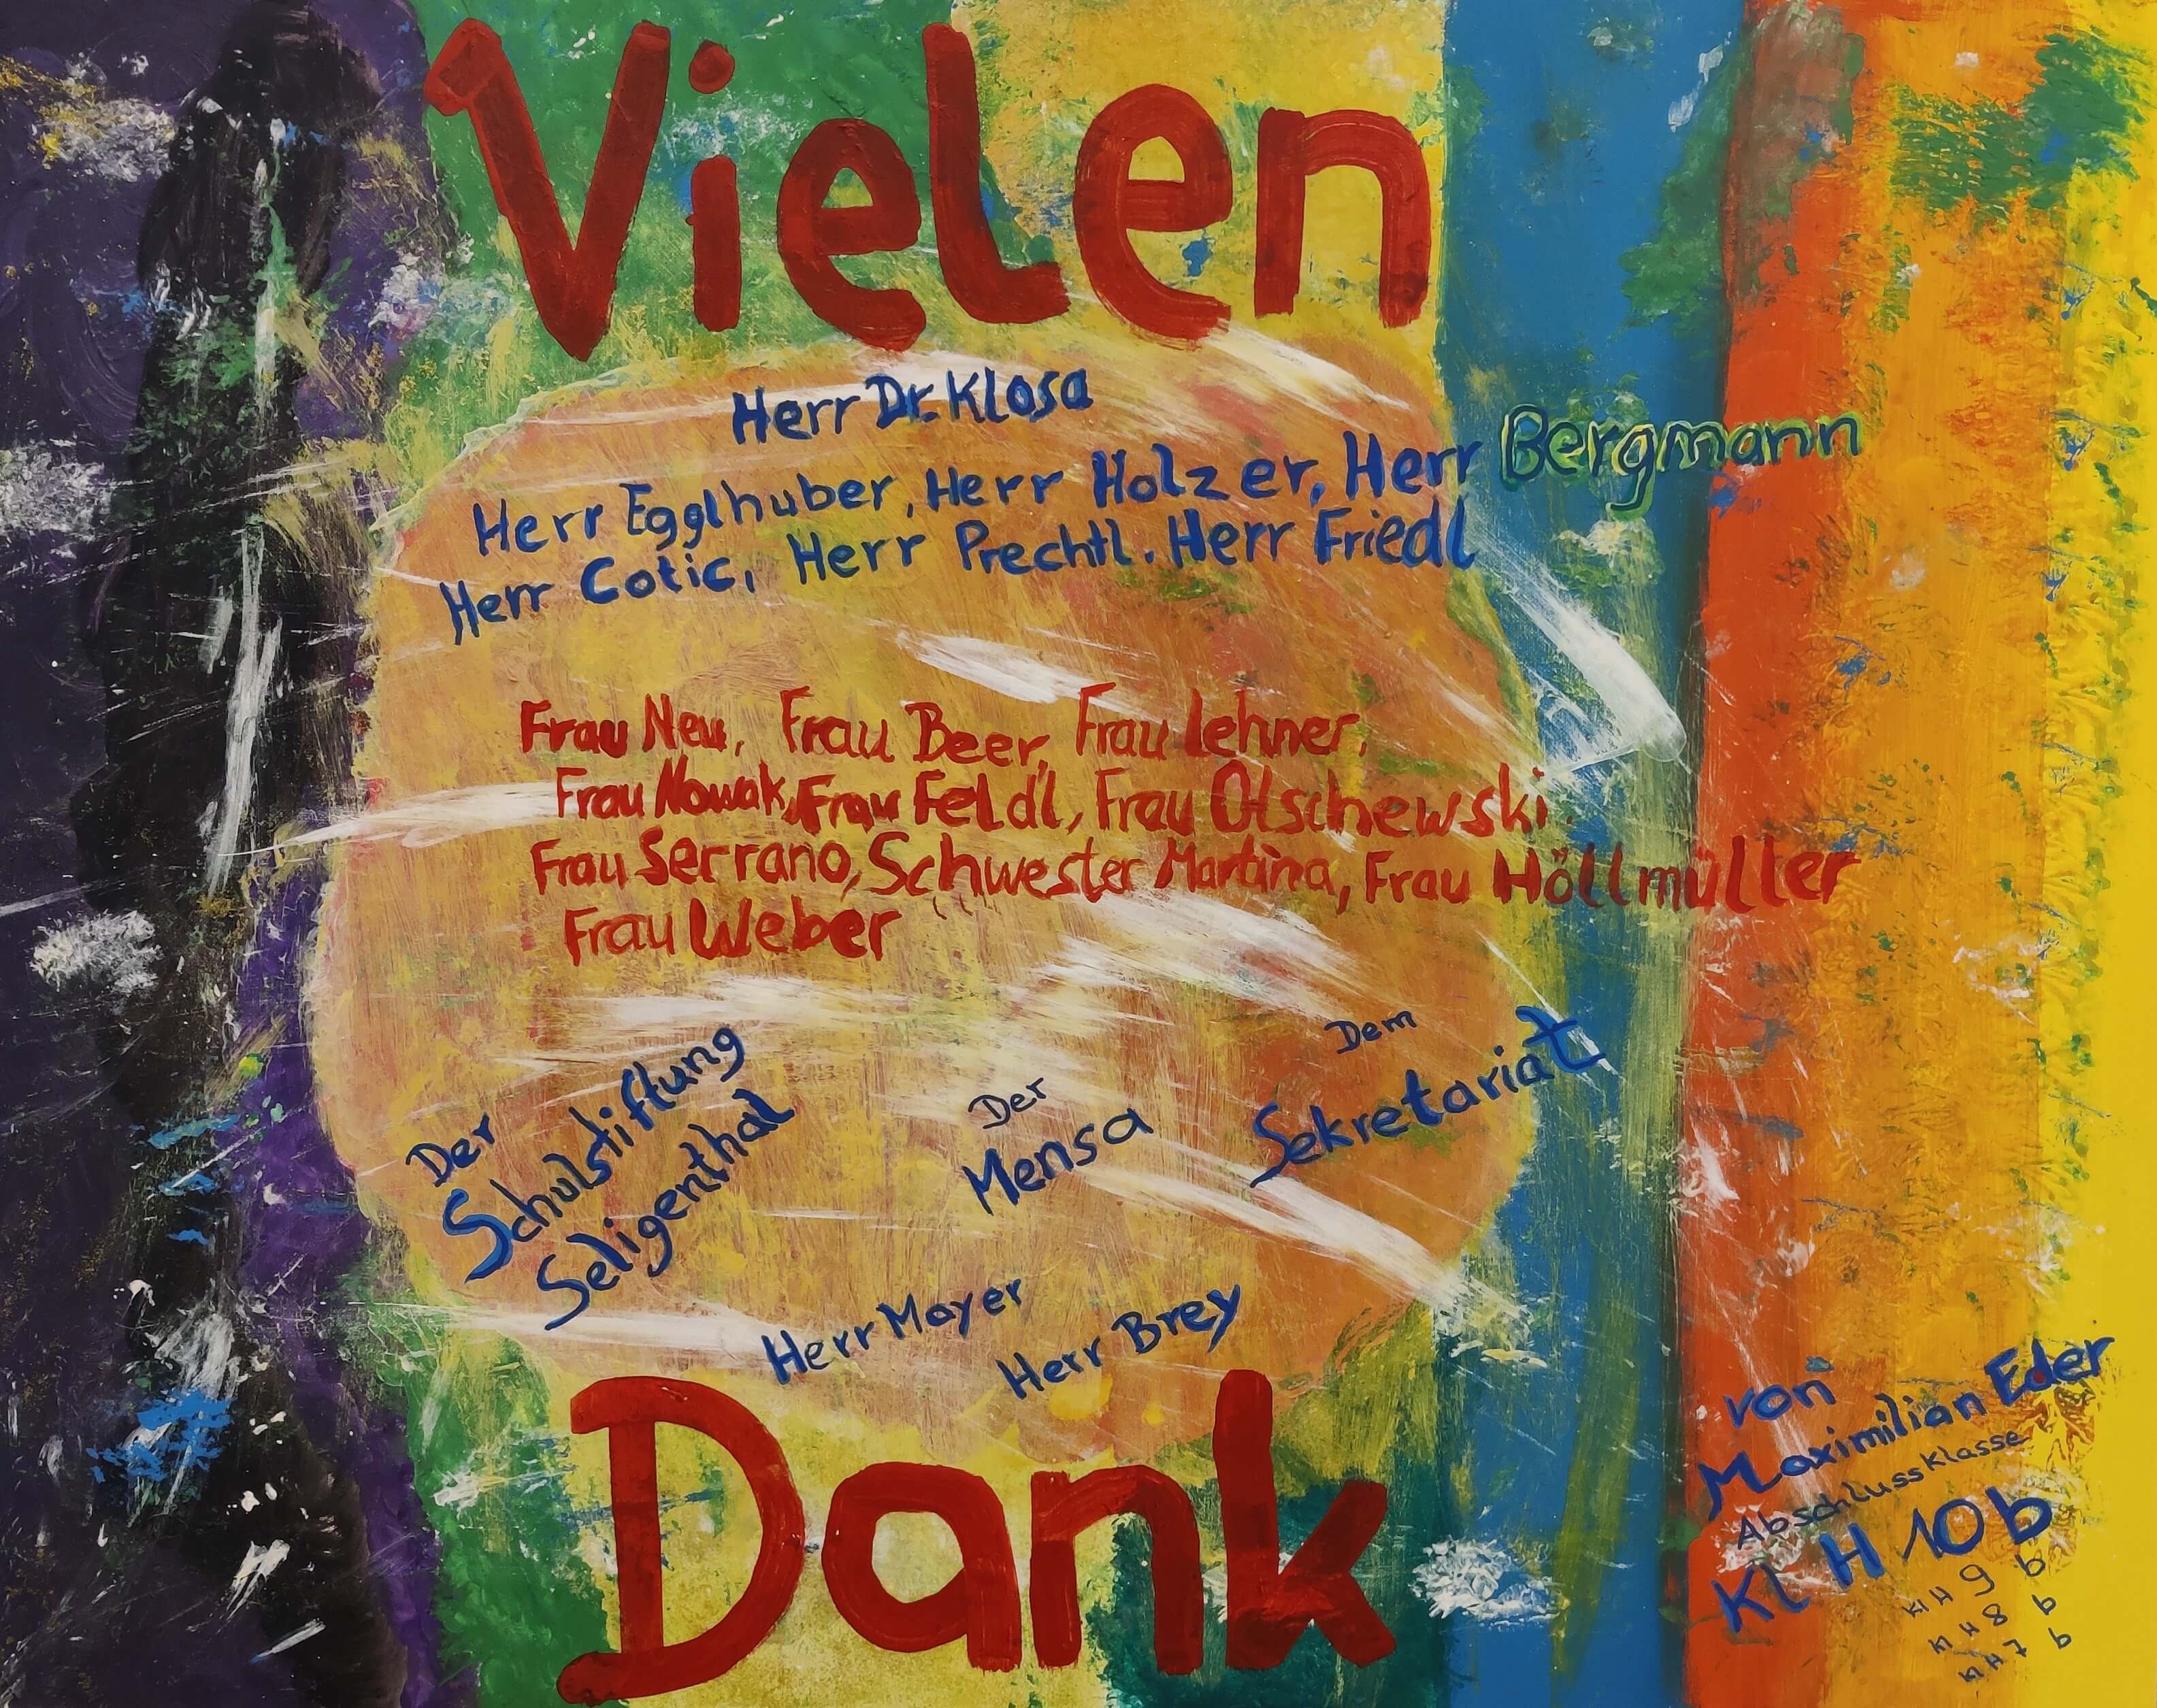 Vielen
Herr Dr. Klosa
Herr Egglhuber, Herr Holzer, Herr Bergmann
Herr Cotic, Herr Prechtl. Herr Friedl
Frau Neu, Frau Beer, Frau Lehner,
Frau Nowak, Frau Feldl, Frau Olschewski.
Frau Serrano, Schwester Martina, Frau Höllmüller
Frau Weber
Der
Schulstiftung
Seligenthal
Der
Mensa
Dem
Sekretariat
Herr Mayer
Herr Brey
Dank
von
Maximilian Eder
Abschlussklasse
Kl H 10 b
Kl H 9 b
Kl H 8 b
Kl H 7 b